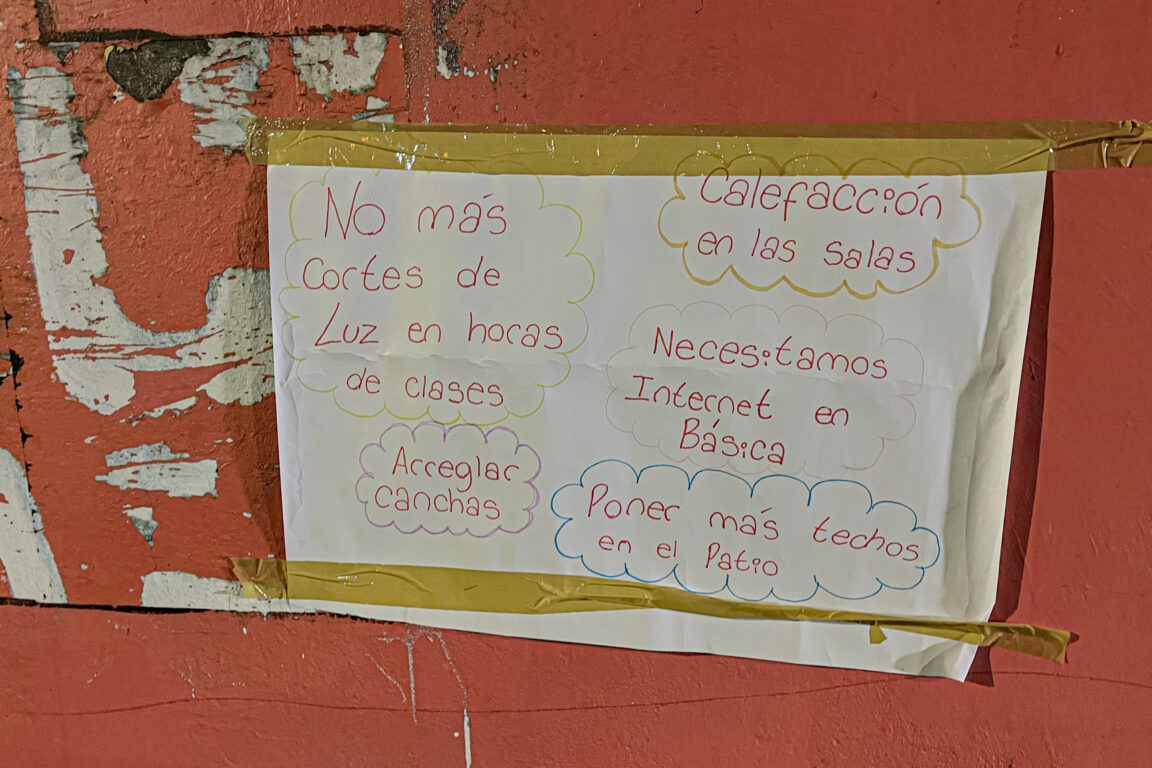 No más
Cortes de
Luz en horas
de clases
Calefacción
en las salas
Necesitamos
Internet en
Básica
Arreglar
canchas
Poner más techos
en el Patio